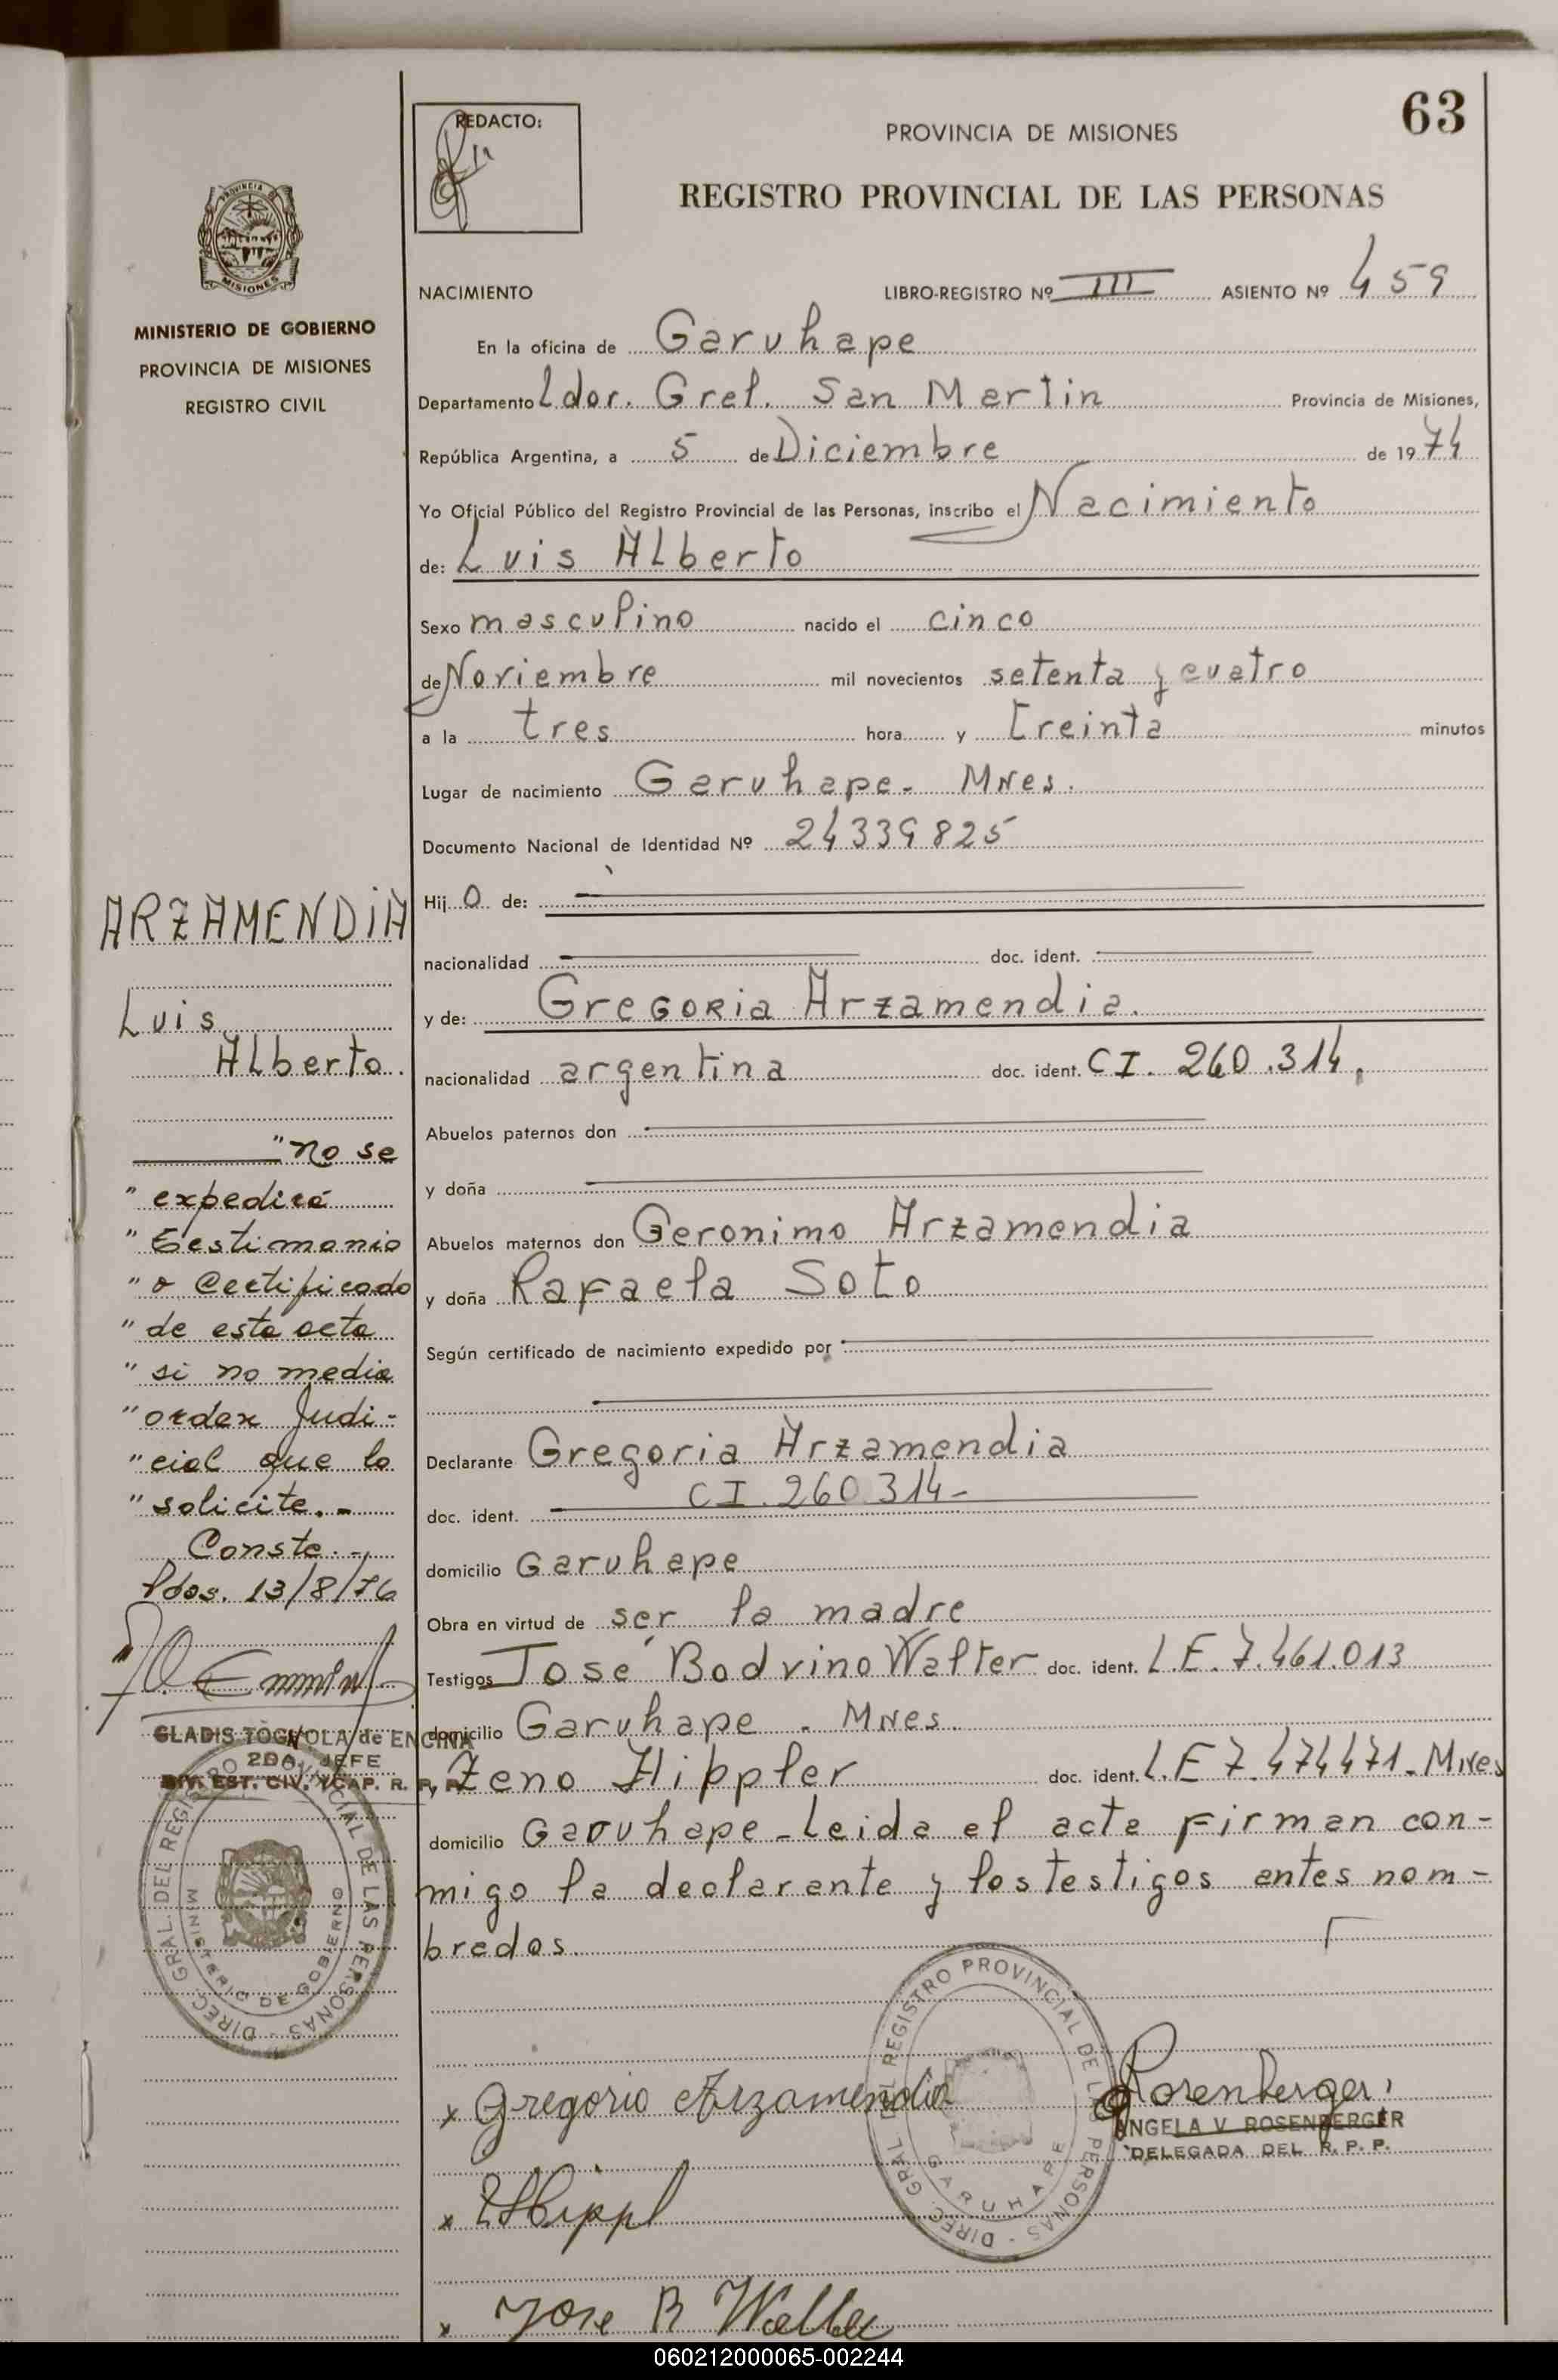 63
REDACTO:
PROVINCIA DE MISIONES
REGISTRO PROVINCIAL DE LAS PERSONAS
PROVINCIA
MISIONES
MINISTERIO DE GOBIERNO
PROVINCIA DE MISIONES
REGISTRO CIVIL
NACIMIENTO LIBRO-REGISTRO Nº III ASIENTO Nº 459
En la oficina de Garuhape
Departamento Ldor. Gral. San Martin Provincia de Misiones,
República Argentina, a 5 de Diciembre de 1974
Yo Oficial Público del Registro Provincial de las Personas, inscribo el Nacimiento
de: Luis Alberto
Sexo masculino nacido el cinco
de Noviembre mil novecientos setenta y cuatro
a la tres hora y treinta minutos
Lugar de nacimiento Garuhape - Mnes.
Documento Nacional de Identidad Nº 24339825
Hijo de:
nacionalidad doc. ident.
y de: Gregoria Arzamendia.
nacionalidad argentina doc. ident. CI. 260.314.
Abuelos paternos don
y doña
Abuelos maternos don Geronimo Arzamendia
y doña Rafaela Soto
Según certificado de nacimiento expedido por
Declarante Gregoria Arzamendia
doc. ident. CI. 260.314-
domicilio Garuhape
Obra en virtud de ser la madre
Testigos José Bodvino Walter doc. ident. L.E. 7.461.013
domicilio Garuhape - Mnes.
y Zeno Hippler doc. ident. L.E 7.474471-Mnes
domicilio Garuhape - Leida el acta firman con-
migo la declarante y los testigos antes nom-
brados.
ARZAMENDIA
Luis
Alberto.
" no se
" expedirá
" testimonio
" o Certificado
" de esta acta
" si no media
" orden Judi-
" cial que lo
" solicite.-
Conste.-
Pdas. 13/8/76
GLADIS TOGNOLA de ENCINA
2DA. JEFE
DIV. EST. CIV. Y CAP. R. P. P.
DIREC. GRAL. DEL REGISTRO PROVINCIAL DE LAS PERSONAS
MINISTERIO DE GOBIERNO
DIREC. GRAL. DEL REGISTRO PROVINCIAL DE LAS PERSONAS
GARUHAPE
x Gregoria Arzamendia
Rosenberger
ANGELA V. ROSENBERGER
DELEGADA DEL R. P. P.
x Hippl
x Jose B Walter
060212000065-002244